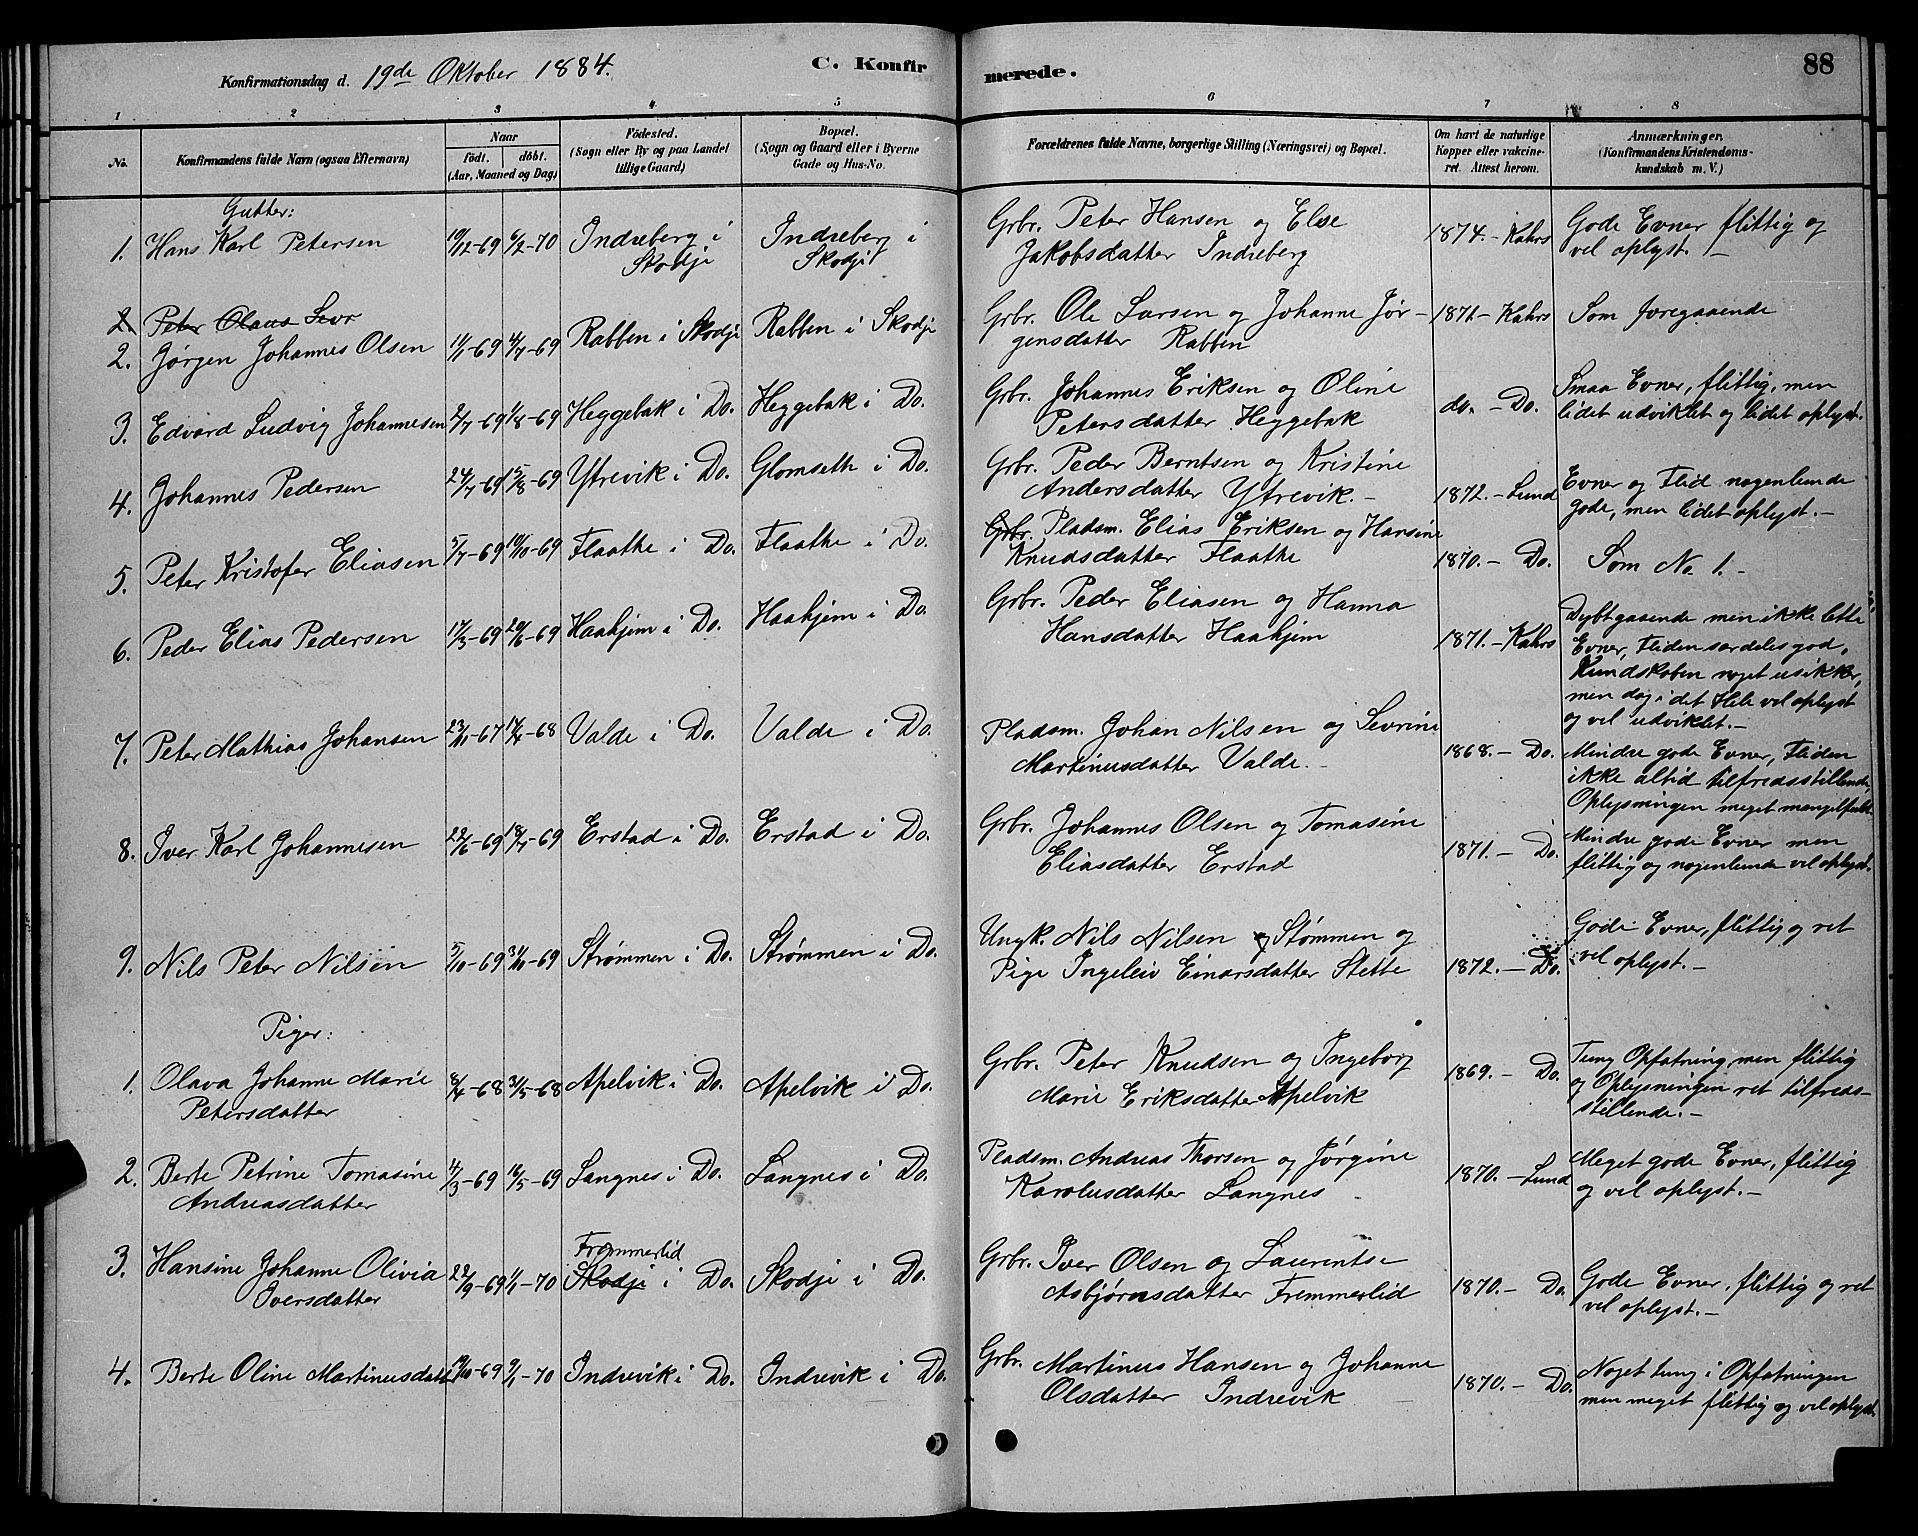 Konfirmationsdag d. 19de Oktober 1884.
C. Konfirmerede.
88
1 2 3 4 5 6 7 8
No.
Konfirmandens fulde Navn (ogsaa Efternavn)
Naar
födt. döbt.
(Aar, Maaned og Dag)
Födested.
(Sogn eller By og paa Landet
tillige Gaard)
Bopæl.
(Sogn og Gaard eller i Byerne
Gade og Hus-No.
Forældrenes fulde Navne, borgerlige Stilling (Næringsvei) og Bopæl.
Om havt de naturlige
Kopper eller vakcine-
ret. Attest herom.
Anmærkninger.
(Konfirmandens Kristendoms-
kundskab m. V.)
Gutter:
1. Hans Karl Petersen 19/12-69 6/2-70 Indreberg i Indreberg i Grbr. Peter Hansen og Else 1874.-Kahrs Gode Evner flittig og
Skodje Skodje Jakobsdatter Indreberg vel oplyst.-
2. Peter Olaus Sevr
2. Jørgen Johannes Olsen 11/1-69 4/7-69 Rabben i Skodje Rabben i Skodje Grbr. Ole Larsen og Johanne Jør- 1871-Kahrs Som foregaaende
gensdatter Rabben
3. Edvard Ludvig Johannesen 2/7-69 1/8-69 Heggebak i Do. Heggebak i Do. Grbr. Johannes Eriksen og Oline do. - Do. Smaa Evner, flittig, men
Petersdatter Heggebak lidet udviklet og lidet oplyst.
4. Johannes Pedersen 24/7-69 15/8-69 Ytrevik i Do. Glomseth i Do. Grbr. Peder Berntsen og Kristine 1872.-Lund Evner og Flid nogenlunde
Andersdatter Ytrevik.- gode, men lidet oplyst.-
5. Peter Kristofer Eliasen 5/7-69 10/10-69 Flaathe i Do. Flaathe i Do. Grbr. Pladsm. Elias Eriksen og Hansine 1870.- Do. Som No 1.-
Knudsdatter Flaathe
6. Peder Elias Pedersen 17/3-69 20/6-69 Haahjem i Do. Haahjem i Do. Grbr. Peder Eliasen og Hanna 1871.-Kahrs Dybtgaaende men ikke lette
Hansdatter Haahjem Evner, Fliden særdeles god,
Kundskaben noget usikker,
men dog i det Hele vel oplyst
og vel udviklet.-
7. Peter Mathias Johansen 23/11-67 14/4-68 Valde i Do. Valde i Do. Pladsm. Johan Nilsen og Sevrine 1868.- Do. Mindre gode Evner, Fliden
Martinusdatter Valde.- ikke altid tilfredsstillende,
Oplysningen meget mangelfuld.
8. Iver Karl Johannesen 22/6-69 18/7-69 Erstad i Do. Erstad i Do. Grbr. Johannes Olsen og Tomasine 1871.- Do. Mindre gode Evner men
Eliasdatter Erstad flittig og nogenlunde vel oplyst.
9. Nils Peter Nilsen 5/10-69 31/10-69 Strømmen i Do. Strømmen i Do. Ungk. Nils Nilsen Stømmen og 1872.- Do. Gode Evner, flittig og ret
Pige Ingeleiv Einarsdatter Stette vel oplyst.-
Piger:
1. Olava Johanne Marie 8/4-68 31/5-68 Apelvik i Do. Apelvik i Do. Grbr. Peter Knudsen og Ingeborg 1869.- Do. Tung Opfatning men flittig
Petersdatter Marie Eriksdatter Apelvik og Oplysningen ret tilfreds-
stillende.-
2. Berte Petrine Tomasine 4/3-69 16/5-69 Langnes i Do. Langnes i Do. Pladsm. Andreas Thorsen og Jørgine 1870.-Lund Meget gode Evner, flittig
Andreasdatter Karolusdatter Langnes og vel oplyst.-
3. Hansine Johanne Olivia 22/9-69 1/1-70 Frommerlid Skodje i Do. Skodje i Do. Grbr. Iver Olsen og Laurentse 1870.- Do. Gode Evner, flittig og ret
Iversdatter Asbjørnsdatter Fremmerlid vel oplyst.-
4. Berte Oline Martinusdatt 19/10-69 9/1-70 Indrevik i Do. Indrevik i Do. Grbr. Martinus Hansen og Johanne 1870.- Do. Noget tung i Opfatningen
Olsdatter Indrevik men meget flittig og vel oplyst